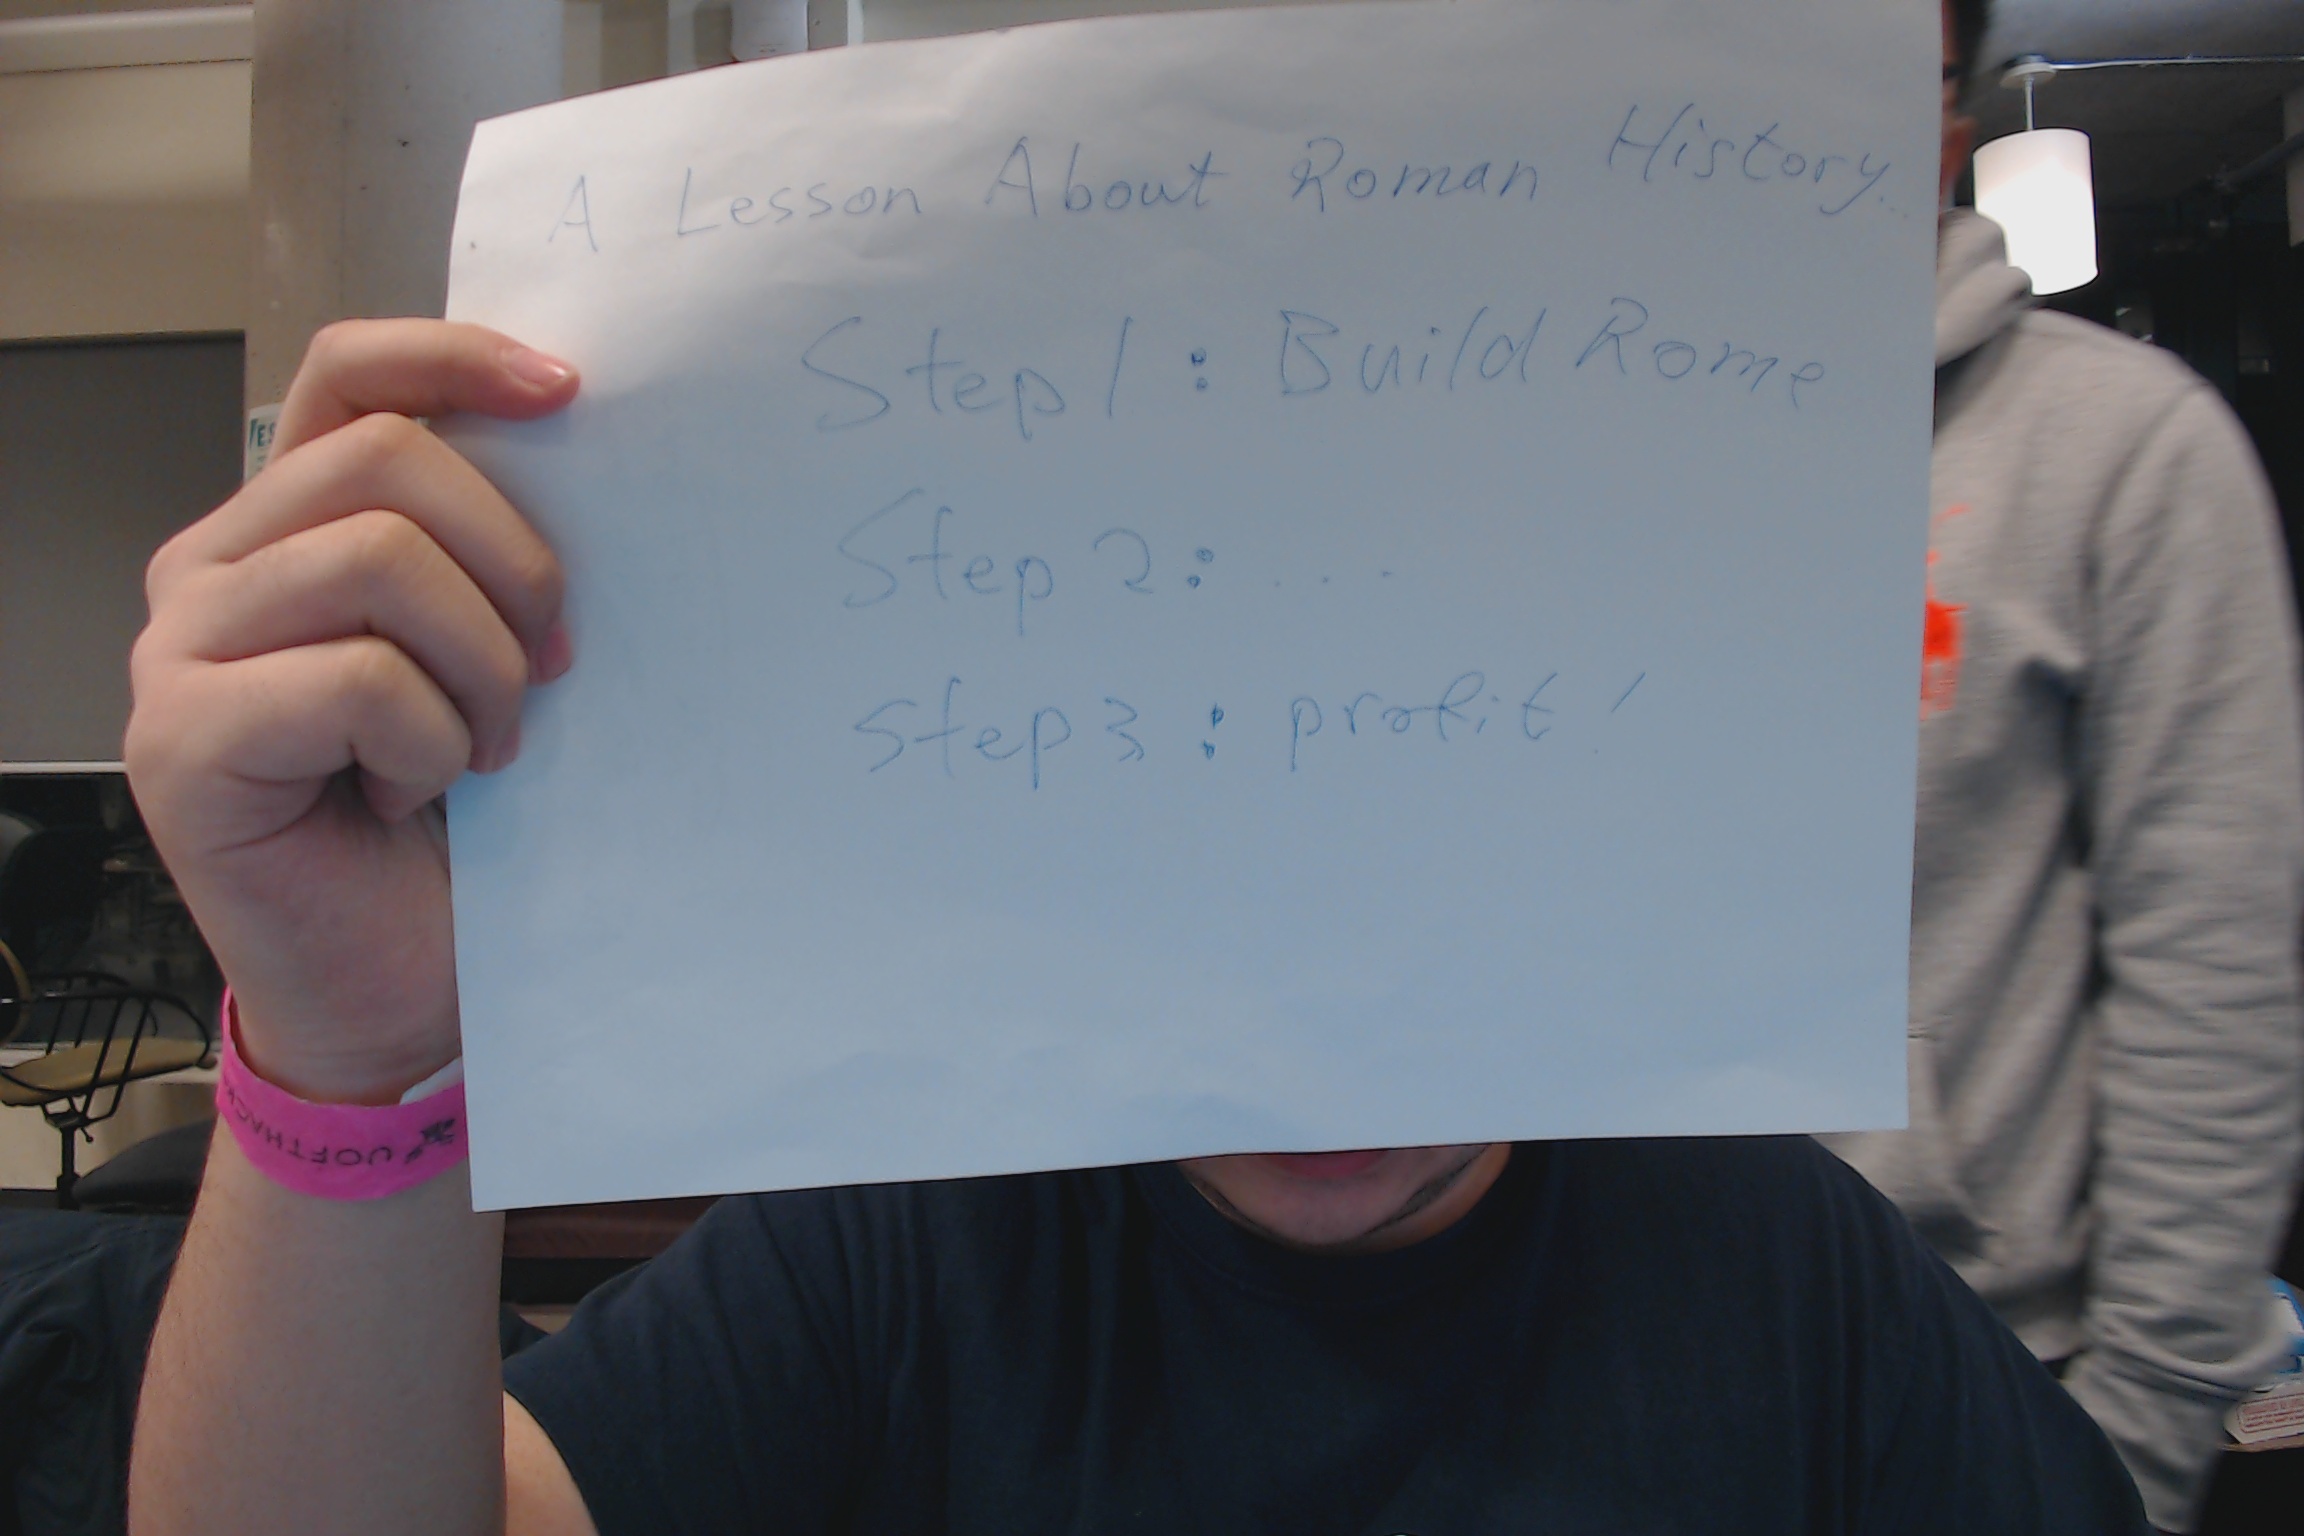 A Lesson About Roman History..
Step 1: Build Rome
Step 2: ...
Step 3: profit!
UOFTHACK